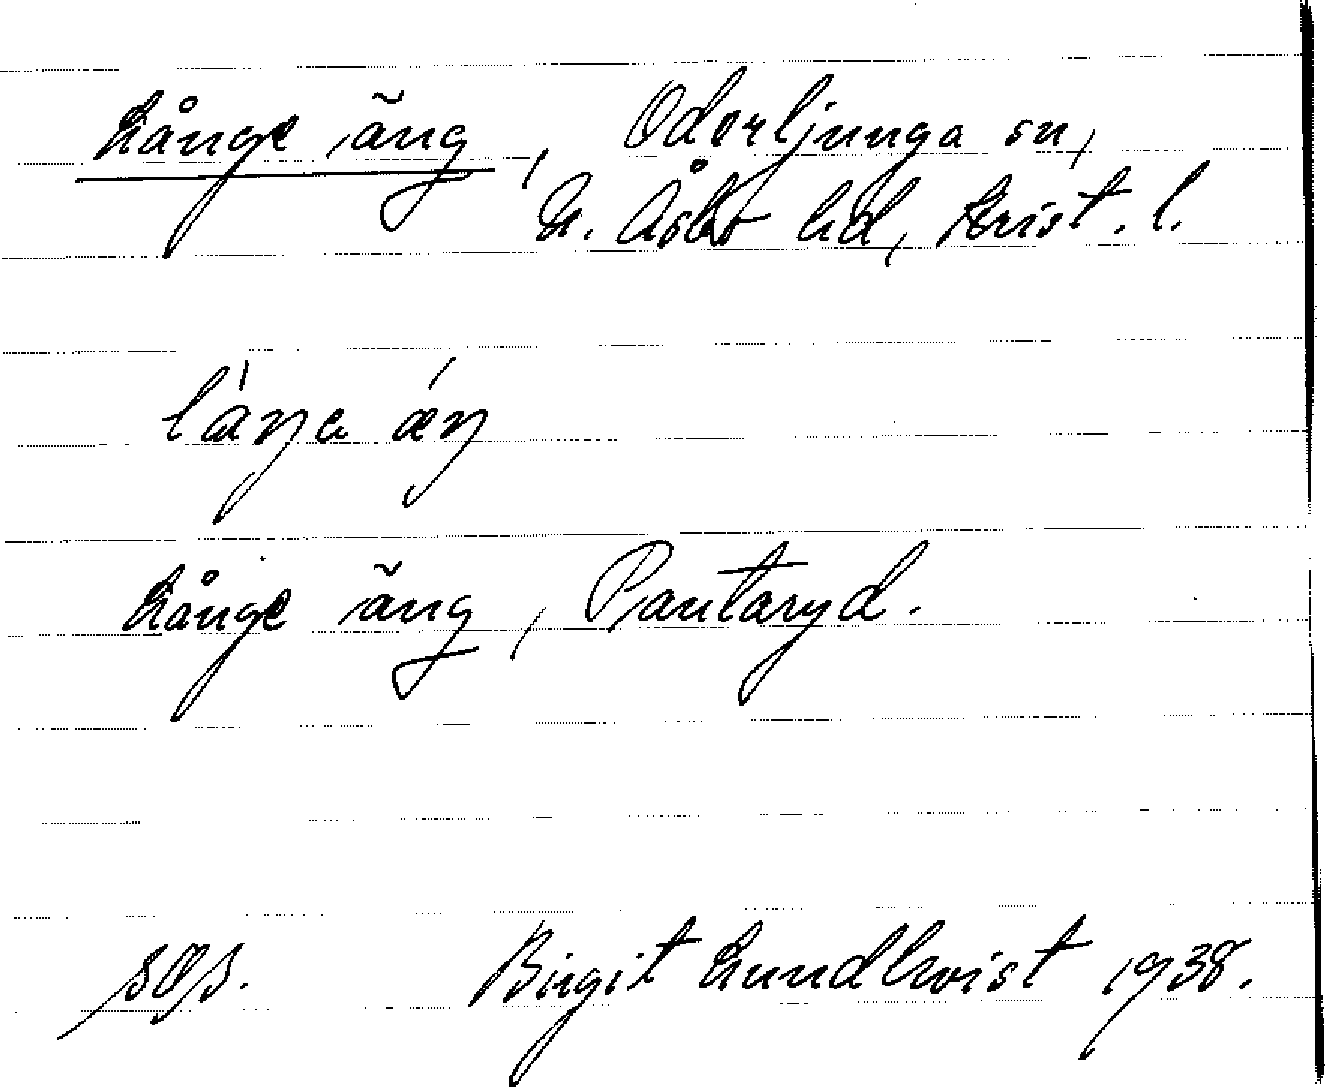 Långe äng, Oderljunga sn,
N. Åsbo hd, Krist. l.
låŋa æŋ
Långe äng, Pantaryd.
Birgit Lundkvist 1938.